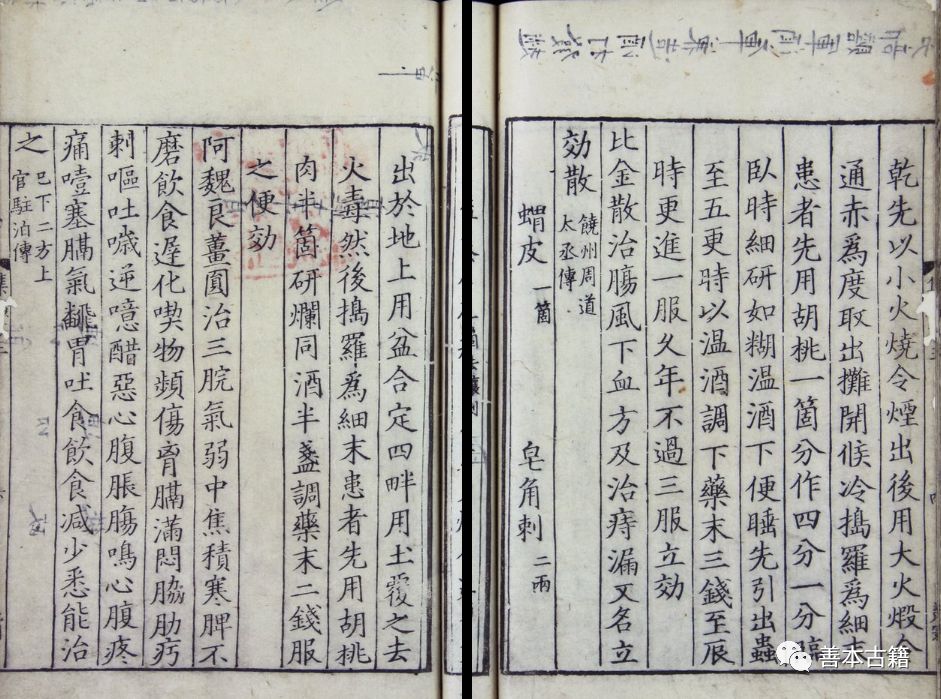 乾先以小火燒令煙出後用大火煅令
通赤爲度取出攤開候冷搗羅爲細
患者先用胡桃一箇分作四分一分臨
臥時細研如糊温酒下便睡先引出蟲
至五更時以温酒調下藥末三錢至辰
時更進一服久年不過三服立効
比金散治腸風下血方及治痔漏又名立
効散 饒州周道
太丞傳
蝟皮 一箇 皂角刺 二兩
出於地上用盆合定四畔用土覆之去
火毒然後搗羅爲細末患者先用胡桃
肉半箇研爛同酒半盞調藥末二錢服
之便効
阿魏良薑圓治三脘氣弱中焦積寒脾不
磨飲食遲化喫物頻傷胷膈滿悶脇肋疞
刺嘔吐噦逆噫醋惡心腹脹腸鳴心腹疼
痛噎塞膈氣飜胃吐食飲食減少悉能治
之 已下二方上
官駐泊傳
善本古籍